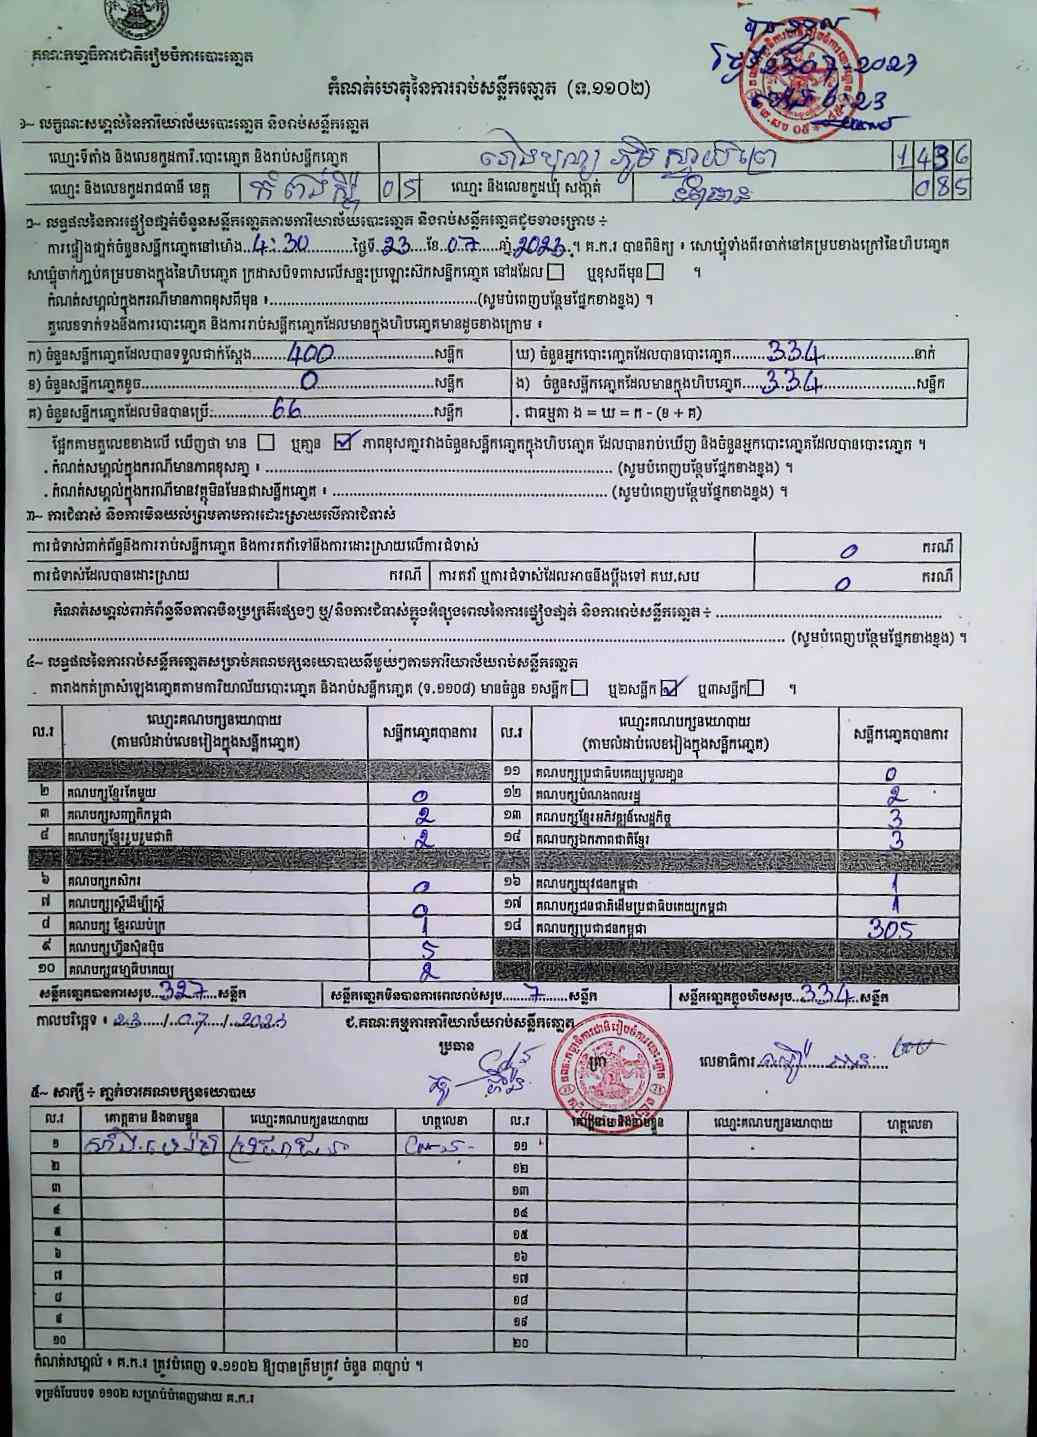 គណៈកម្មាធិការជាតិរៀបចំការបោះឆ្នោត
23 07 2023
កំណត់ហេតុនៃការរាប់សន្លឹកឆ្នោត (ទ.១១០២)
១~ លក្ខណៈសម្គាល់នៃការិយាល័យបោះឆ្នោត និងរាប់សន្លឹកឆ្នោត
ឈ្មោះទីតាំង និងលេខកូដការិ.បោះឆ្នោត និងរាប់សន្លឹកឆ្នោត រោងបុណ្យ ភូមិ ស្វាយព្រៃ 1436
ឈ្មោះ និងលេខកូដរាជធានី ខេត្ត កំពង់ស្ពឺ 05 ឈ្មោះ និងលេខកូដឃុំ សង្កាត់ 085
២~ លទ្ធផលនៃការផ្ទៀងផ្ទាត់ចំនួនសន្លឹកឆ្នោតតាមការិយាល័យបោះឆ្នោត និងរាប់សន្លឹកឆ្នោតដូចខាងក្រោម ÷
ការផ្ទៀងផ្ទាត់ចំនួនសន្លឹកឆ្នោតនៅម៉ោង..4:30..ថ្ងៃទី.23..ខែ.07..ឆ្នាំ.2023.។ គ.ក.រ បានពិនិត្យ ៖ សោឃ្លុំទាំងពីរចាក់នៅគម្របខាងក្រៅនៃហិបឆ្នោត
សាឃ្លុំចាក់ភ្ជាប់គម្របខាងក្នុងនៃហិបឆ្នោត ក្រដាសបិទពាសលើសន្ទះប្រឡោះស៊កសន្លឹកឆ្នោត នៅដដែល ☐ ឬខុសពីមុន ☐ ។
កំណត់សម្គាល់ក្នុងករណីមានភាពខុសពីមុន ៖..........(សូមបំពេញបន្ថែមផ្នែកខាងខ្នង) ។
តួលេខទាក់ទងនឹងការបោះឆ្នោត និងការរាប់សន្លឹកឆ្នោតដែលមានក្នុងហិបឆ្នោតមានដូចខាងក្រោម ៖
ក) ចំនួនសន្លឹកឆ្នោតដែលបានទទួលជាក់ស្តែង....400....សន្លឹក ឃ) ចំនួនអ្នកបោះឆ្នោតដែលបានបោះឆ្នោត....334....នាក់
ខ) ចំនួនសន្លឹកឆ្នោតខូច....0....សន្លឹក ង) ចំនួនសន្លឹកឆ្នោតដែលមានក្នុងហិបឆ្នោត...334....សន្លឹក
គ) ចំនួនសន្លឹកឆ្នោតដែលមិនបានប្រើ:....66....សន្លឹក . ជាធម្មតា ង = ឃ = ក - (ខ + គ)
ផ្អែកតាមតួលេខខាងលើ ឃើញថា មាន ☐ ឬគ្មាន ☑ ភាពខុសគ្នារវាងចំនួនសន្លឹកឆ្នោតក្នុងហិបឆ្នោត ដែលបានរាប់ឃើញ និងចំនួនអ្នកបោះឆ្នោតដែលបានបោះឆ្នោត ។
. កំណត់សម្គាល់ក្នុងករណីមានភាពខុសគ្នា ៖ .......... (សូមបំពេញបន្ថែមផ្នែកខាងខ្នង) ។
. កំណត់សម្គាល់ក្នុងករណីមានវត្ថុមិនមែនជាសន្លឹកឆ្នោត ៖ .......... (សូមបំពេញបន្ថែមផ្នែកខាងខ្នង) ។
៣~ ការជំទាស់ និងការមិនយល់ព្រមតាមការដោះស្រាយលើការជំទាស់
ការជំទាស់ពាក់ព័ន្ធនឹងការរាប់សន្លឹកឆ្នោត និងការតវ៉ាទៅនឹងការដោះស្រាយលើការជំទាស់ 0 ករណី
ការជំទាស់ដែលបានដោះស្រាយ ករណី ការតវ៉ា ឬការជំទាស់ដែលអាចនឹងប្តឹងទៅ គឃ.សប 0 ករណី
កំណត់សម្គាល់ពាក់ព័ន្ធនឹងភាពមិនប្រក្រតីផ្សេងៗ ឬ/និងការជំទាស់ក្នុងអំឡុងពេលនៃការផ្ទៀងផ្ទាត់ និងការរាប់សន្លឹកឆ្នោត÷ ..........
.......... (សូមបំពេញបន្ថែមផ្នែកខាងខ្នង) ។
៤~ លទ្ធផលនៃការរាប់សន្លឹកឆ្នោតសម្រាប់គណបក្សនយោបាយនីមួយៗតាមការិយាល័យរាប់សន្លឹកឆ្នោត
តារាងកត់ត្រាសំឡេងឆ្នោតតាមការិយាល័យបោះឆ្នោត និងរាប់សន្លឹកឆ្នោត (ទ.១១០៨) មានចំនួន ១សន្លឹក ☐ ឬ២សន្លឹក ☑ ឬ៣សន្លឹក ☐ ។
ល.រ ឈ្មោះគណបក្សនយោបាយ (តាមលំដាប់លេខរៀងក្នុងសន្លឹកឆ្នោត) សន្លឹកឆ្នោតបានការ ល.រ ឈ្មោះគណបក្សនយោបាយ (តាមលំដាប់លេខរៀងក្នុងសន្លឹកឆ្នោត) សន្លឹកឆ្នោតបានការ
១១ គណបក្សប្រជាធិបតេយ្យមូលដ្ឋាន 0
២ គណបក្សខ្មែរតែមួយ 0 ១២ គណបក្សបំណងពលរដ្ឋ 2
៣ គណបក្សសញ្ជាតិកម្ពុជា 2 ១៣ គណបក្សខ្មែរអភិវឌ្ឍន៍សេដ្ឋកិច្ច 3
៤ គណបក្សខ្មែររួបរួមជាតិ 2 ១៤ គណបក្សឯកភាពជាតិខ្មែរ 3
៦ គណបក្សកសិករ 0 ១៦ គណបក្សយុវជនកម្ពុជា 1
៧ គណបក្សស្ត្រីដើម្បីស្ត្រី 0 ១៧ គណបក្សជនជាតិដើមប្រជាធិបតេយ្យកម្ពុជា 1
៨ គណបក្ស ខ្មែរឈប់ក្រ 1 ១៨ គណបក្សប្រជាជនកម្ពុជា 305
៩ គណបក្សហ្វ៊ុនស៊ិនប៉ិច 5
១០ គណបក្សធម្មាធិបតេយ្យ 2
សន្លឹកឆ្នោតបានការសរុប..327....សន្លឹក សន្លឹកឆ្នោតមិនបានការពេលរាប់សរុប....7....សន្លឹក សន្លឹកឆ្នោតក្នុងហិបសរុប..334..សន្លឹក
កាលបរិច្ឆេទ ៖ 23...../..07..../..2023 ជ.គណៈកម្មការការិយាល័យរាប់សន្លឹកឆ្នោត
ប្រធាន ត្រា លេខាធិការ
៥~ សាក្សី ÷ ភ្នាក់ងារគណបក្សនយោបាយ
ល.រ គោត្តនាម និងនាមខ្លួន ឈ្មោះគណបក្សនយោបាយ ហត្ថលេខា ល.រ គោត្តនាម និងនាមខ្លួន ឈ្មោះគណបក្សនយោបាយ ហត្ថលេខា
១ ប្រជាជន ១១
២ ១២
៣ ១៣
៤ ១៤
៥ ១៥
៦ ១៦
៧ ១៧
៨ ១៨
៩ ១៩
១០ ២០
កំណត់សម្គាល់ ៖ គ.ក.រ ត្រូវបំពេញ ទ.១១០២ ឱ្យបានត្រឹមត្រូវ ចំនួន ៣ច្បាប់ ។
ទម្រង់បែបបទ ១១០២ សម្រាប់បំពេញដោយ គ.ក.រ